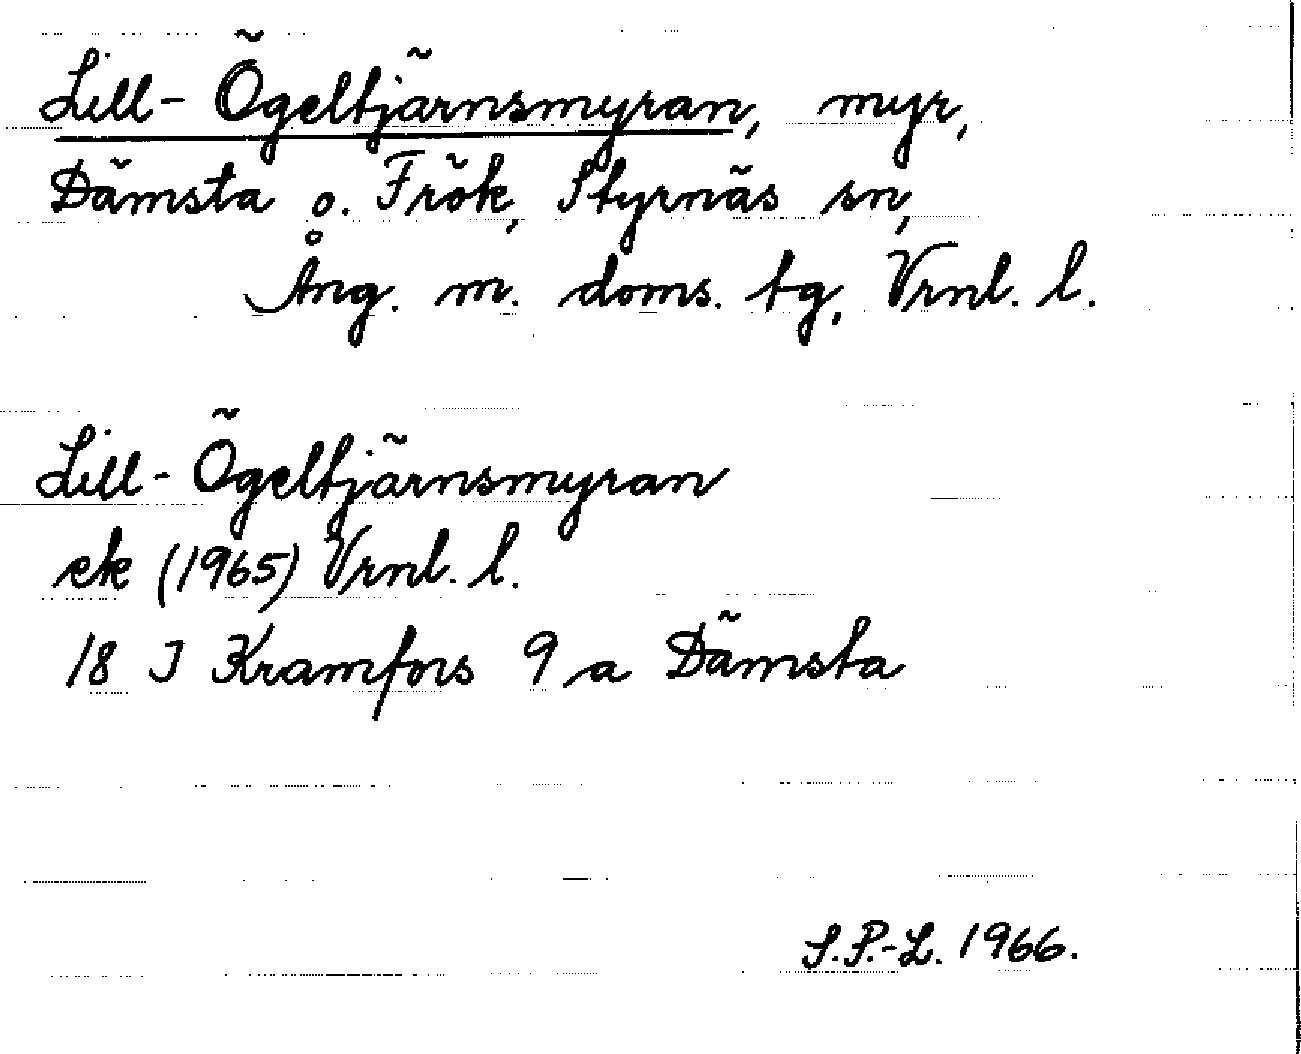 Lill-Ögeltjärnsmyran, myr,
Dämsta o. Frök, Styrnäs sn,
Ång. m. doms. tg, Vrnl. l.
Lill-Ögeltjärnsmyran
ek (1965) Vrnl. l.
18 J Kramfors 9 a Dämsta
S.P.-L. 1966.